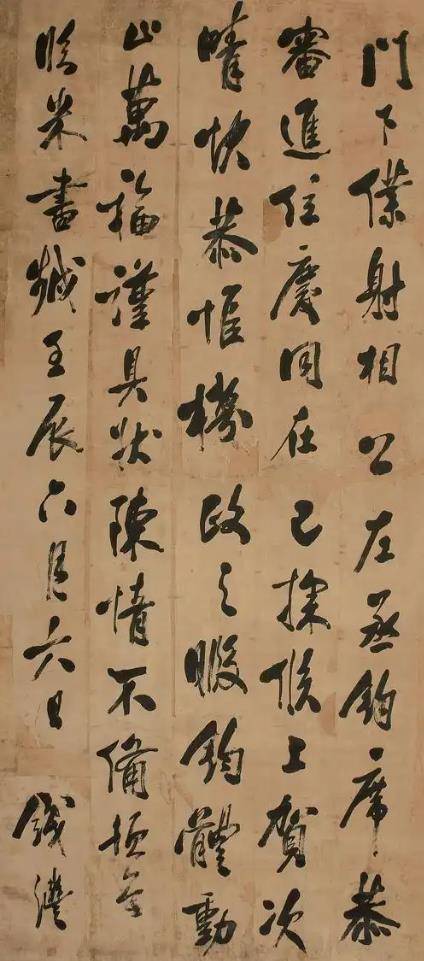 門下僕射相公左丞鈞席恭
審進位慶同在已候上賀次
晴快恭惟機政之暇鈞體動
止萬福謹具狀陳情不備
臨米書壬辰六月六日 錢灃